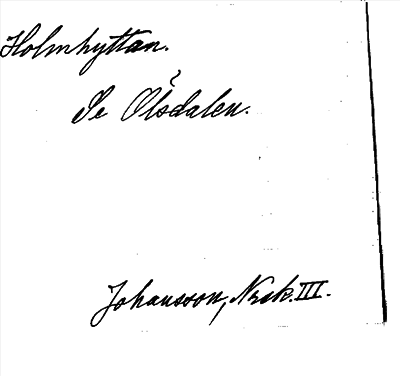 Holmhyttan.
Se Olsdalen.
Johansson, Nrsk. III.